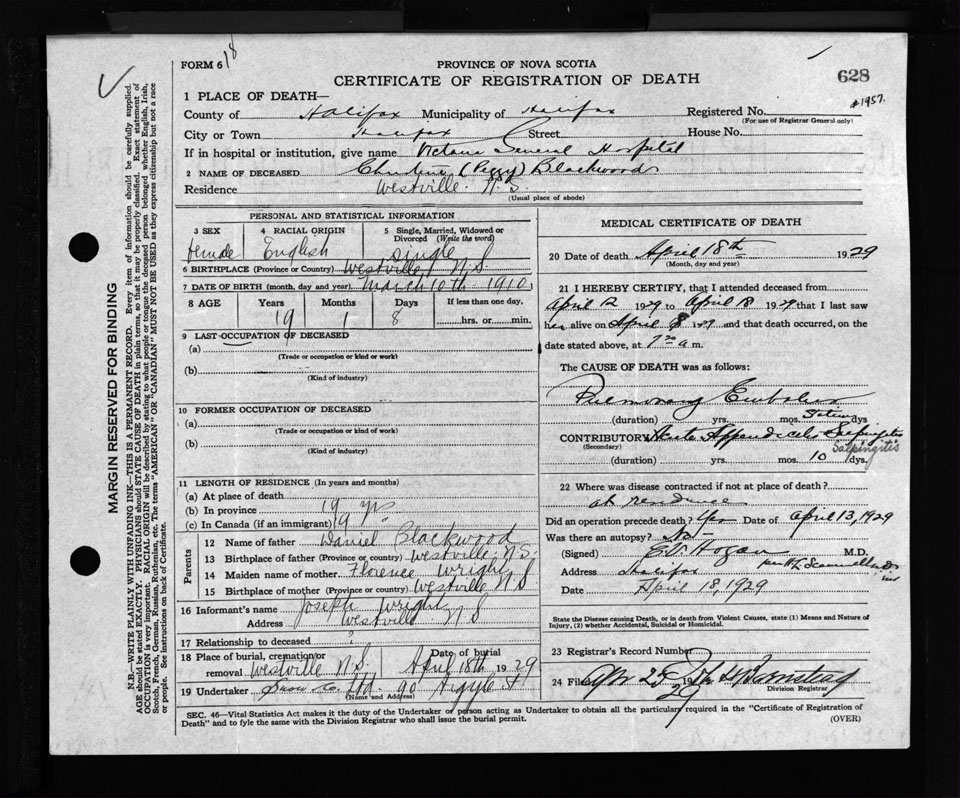 FORM 6 18
PROVINCE OF NOVA SCOTIA
628
CERTIFICATE OF REGISTRATION OF DEATH
#1957.
1 PLACE OF DEATH—
County of Halifax Municipality of Halifax Registered No.
(For use of Registrar General only)
City or Town Halifax Street House No.
If in hospital or institution, give name Victoria General Hospital
2 NAME OF DECEASED Christine (Peggy) Blackwood
Residence Westville. N.S.
(Usual place of abode)
PERSONAL AND STATISTICAL INFORMATION
3 SEX female
4 RACIAL ORIGIN English
5 Single, Married, Widowed or Divorced (Write the word) Single
6 BIRTHPLACE (Province or Country) Westville N.S.
7 DATE OF BIRTH (month, day and year) March 10th 1910
8 AGE Years Months Days If less than one day,
19 1 8 hrs. or min.
9 LAST OCCUPATION OF DECEASED
(a)
(Trade or occupation or kind or work)
(b)
(Kind of industry)
10 FORMER OCCUPATION OF DECEASED
(a)
(Trade or occupation or kind of work)
(b)
(Kind of industry)
11 LENGTH OF RESIDENCE (In years and months)
(a) At place of death
(b) In province 19 yrs
(c) In Canada (if an immigrant) 19 "
Parents
12 Name of father Daniel Blackwood
13 Birthplace of father (Province or country) Westville N.S.
14 Maiden name of mother Florence Wright
15 Birthplace of mother (Province or country) Westville N S
16 Informant's name Joseph Wright
Address Westville N S
17 Relationship to deceased ?
18 Place of burial, cremation or removal Westville N.S. Date of burial April 18th 1929
19 Undertaker Snow Co Ltd. 90 Argyle St
(Name and Address)
MEDICAL CERTIFICATE OF DEATH
20 Date of death April 18th 1929
(Month, day and year)
21 I HEREBY CERTIFY, that I attended deceased from
April 12 1929 to April 18 1929 that I last saw
her alive on April 8 1929 and that death occurred, on the
date stated above, at 7 20 a m.
The CAUSE OF DEATH was as follows:
Pulmonary Embolus
(duration) yrs. mos. dys
CONTRIBUTORY Acute Appendicitis Salpingitis
(Secondary) Salpingitis
(duration) yrs. mos. 10 dys.
22 Where was disease contracted if not at place of death?
at residence
Did an operation precede death? Yes Date of April 13, 1929
Was there an autopsy? No
(Signed) E.V. Hogan M.D.
Address Halifax
Date April 18, 1929
State the Disease causing Death, or in death from Violent Causes, state (1) Means and Nature of Injury, (2) whether Accidental, Suicidal or Homicidal.
23 Registrar's Record Number
24 Filed 25
Division Registrar
SEC. 46—Vital Statistics Act makes it the duty of the Undertaker or person acting as Undertaker to obtain all the particulars required in the "Certificate of Registration of
Death" and to fyle the same with the Division Registrar who shall issue the burial permit.
(OVER)
MARGIN RESERVED FOR BINDING
N.B.—WRITE PLAINLY WITH UNFADING INK—THIS IS A PERMANENT RECORD. Every item of information should be carefully supplied.
AGE should be stated EXACTLY. PHYSICIANS should STATE CAUSE OF DEATH in plain terms, so that it may be properly classified. Exact statement of
OCCUPATION is very important. RACIAL ORIGIN will be described by stating to what people or tongue the deceased person belonged whether English, Irish,
Scotch, French, German, Russian, Ruthenian, etc. The terms "AMERICAN" or "CANADIAN" MUST NOT BE USED as they express citizenship but not a race
or people. See instructions on back of Certificate.